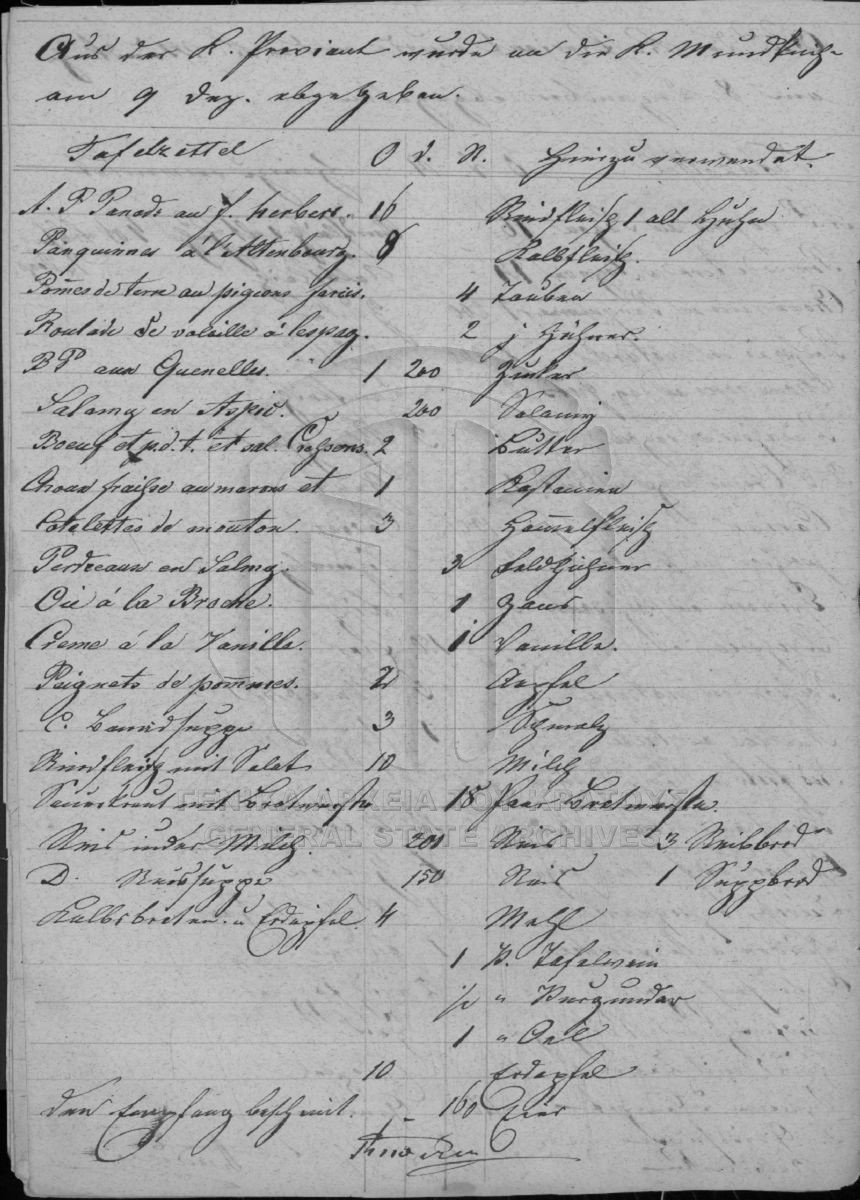 Aus der K. Proviant wurde an die K. Mundküche
am 9 Dez. abgegeben.
Tafelzettel O d. N. Hiezu verwendet.
A. P Panade au f. herbers. 16 Rindfleisch 1 alt Huhn
à l'Altenbourg. 8 Kalbfleisch.
Pomes de terre au pigeons farcis. 4 Tauben
Roulade de volaille á lespag. 2 j Hühner.
BP aux Quenelles. 1 200 Zucker
Salamy en Aspic. 200 Salamy
Boeuf et p.d.t. et sal. Cressons. 2 Butter
Choux fraisse au marons et 1 Kastanien
Cotelettes de mouton. 3 Hammelfleisch
Perdreaux en Salmy. 3 Feldhühner
Oie á la Broche. 1 Gans
Creme á la Vanille. 1 Vanille.
Peignets de pommes. 2 Aepfel
C. Brandsuppe 3 Schmalz
Rindfleisch mit Salat 10 Milch
Sauerkraut mit Bratwürste 18 Paar Bratwürste.
ΓΕΝΙΚΑ ΑΡΧΕΙΑ ΤΟΥ ΚΡΑΤΟΥΣ
GENERAL STATE ARCHIVES
Reis in der Milch. 200 Reis 3 Reibbrod
D. Reissuppe 150 Reis 1 Suppbrod
Kalbsbraten u Erdäpfel. 4 Mehl
1 B. Tafelwein
1/2 " Burgunder
1 " Oel
10 Erdäpfel
Den Empfang bescheint. 160 Eier